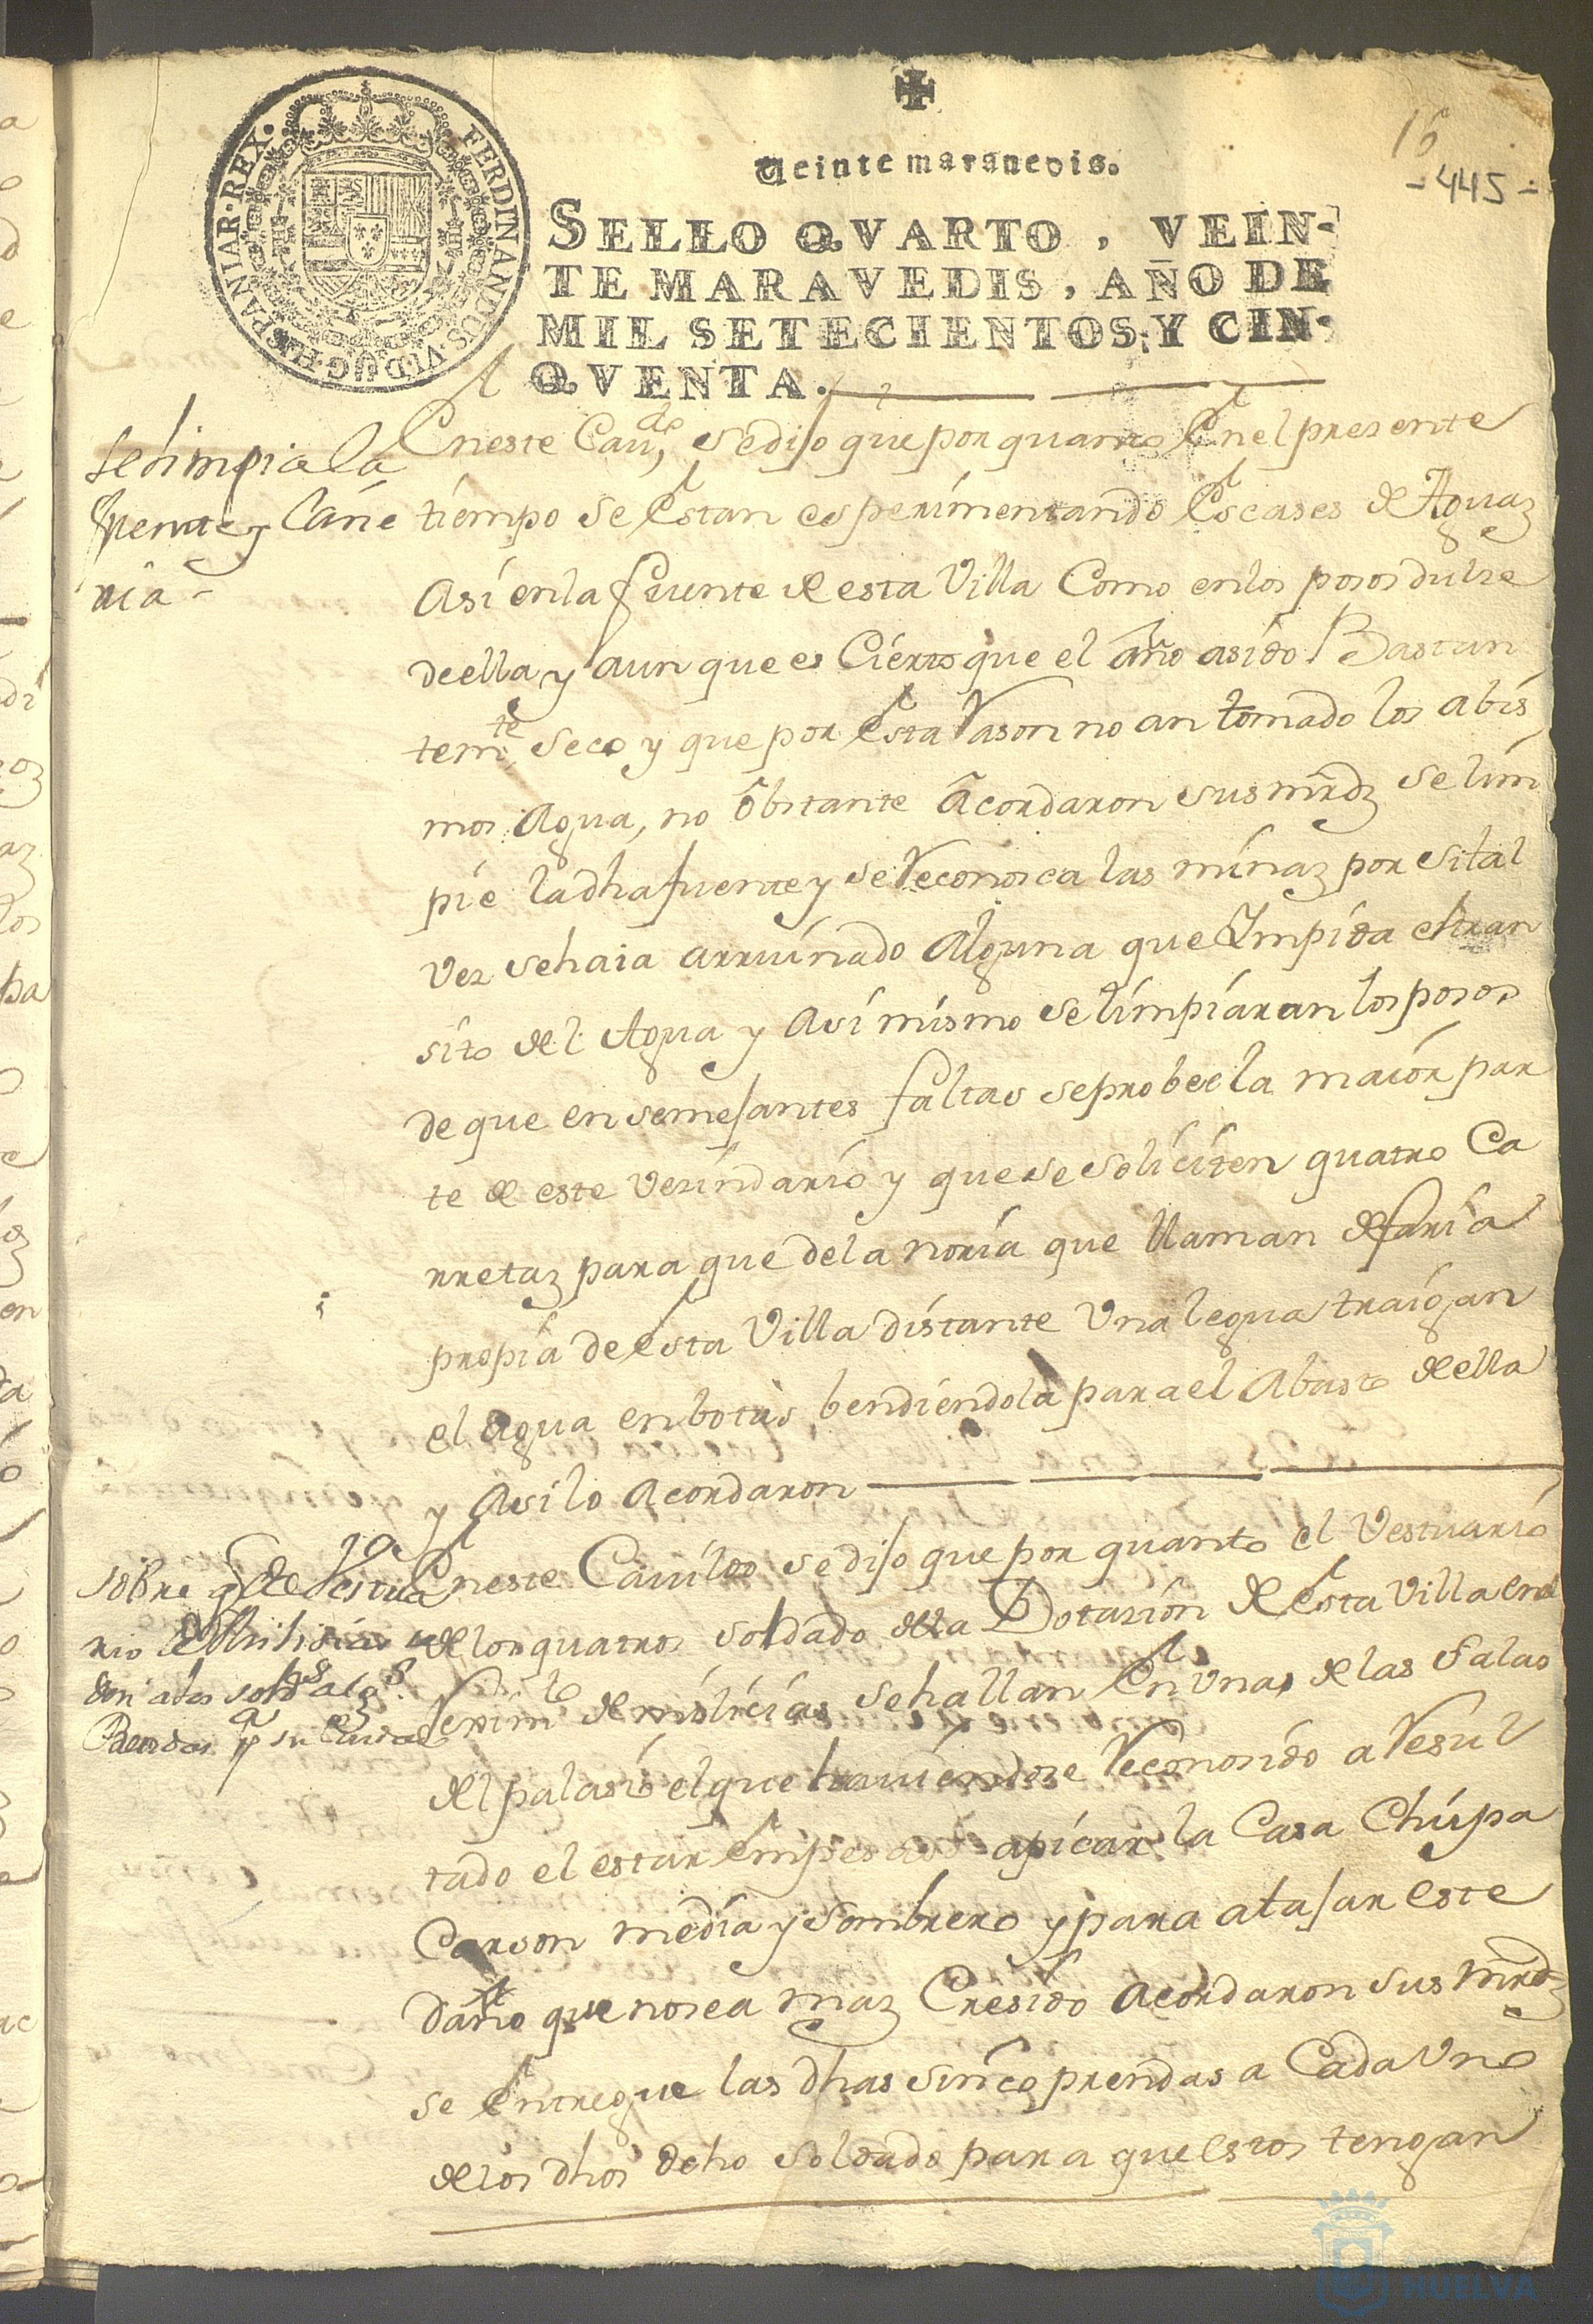 FERDINANDUS·VI·D·G·HISPANIAR·REX·
Veinte maravedis.
SELLO QVARTO, VEIN-
TE MARAVEDIS, AÑO DE
MIL SETECIENTOS Y CIN-
QVENTA.
16
-445-
Se limpia la
fuente y Cañe
ria-
En este Caudo, se dijo que por quanto En el presente
tiempo se Estan esperimentando Escases de Aguas
Asi en la fuente de esta Villa Como en los posos dulse
de ella y aun que es Cierto que el año asido Bastan
temte, seco y que por Esta Rason no an tomado los abis
mos Agua, no obstante acordaron sus mrdz se lim
pie la dha fuente y se Reconosca las minas por si tal
ves se haia arruinado Alguna que Impida el tran
sito del Agua y Asi mismo se limpiaran los posos
de que en semejantes faltas se probee la maior par
te de este vesindario y que se soliciten quatro Ca
rretas para que de la noria que llaman de faria
propia de Esta Villa distante Una legua traigan
el agua en botas, bendiendola para el Abasto de ella
y Asi lo Acordaron
sobre qe Vestua
rio de Milisias se
den a los soldos las
Prendas pa su Cuidado
En este Cauildo se dijo que por quanto el Vestuario
de los quatros soldado de la Dotasion de Esta Villa en el
de milicias se hallan En Unas de las Salas
del palasio el que hauiendose Reconosido a Resul
tado el estar Empesado apicar la Casa Chupa
Carson media y Sombrero y para atajar este
Daño que no sea mas Cresido acordaron sus mrdz
se Entregue las dhas sinco prendas a Cada Uno
de los dhos ocho Soldado para que Estos tengan
HUELVA